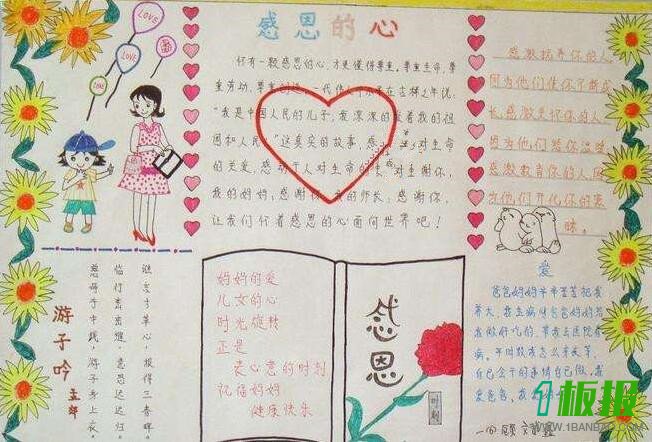 感恩的心
LOVE
LOVE
怀有一颗感恩的心,才更懂得尊重。尊重生命、尊
重劳动、尊重创造。一代伟人邓小平在古稀之年说:
“我是中国人民的儿子,我深深的爱着我的祖
国和人民。”这真实的故事,感
对生命
的关爱,感动于人对生命的
我的妈妈;感谢
我的师长;感谢你,
让我们怀着感恩的心面向世界吧!
感激抚养你的人
因为他们使你不断成
长感激关怀你的人
因为他们给你温暖
感激教育你的人因
为他们开化你的蒙
昧。
游子吟
孟郊
慈母手中线,游子身上衣。
临行密密缝,意恐迟迟归。
谁言寸草心,报得三春晖。
妈妈的爱
儿女的心
时光旋转
正是
表心意的时刻
祝福妈妈
健康快乐
感恩
爱
爸爸妈妈辛辛苦苦把我
养大,我生病时爸爸妈妈给
我做好吃的,带我去医院看
病。
自己会干的事情自己做。
爱爸爸,
1板报
WWW.1BANBAO.COM